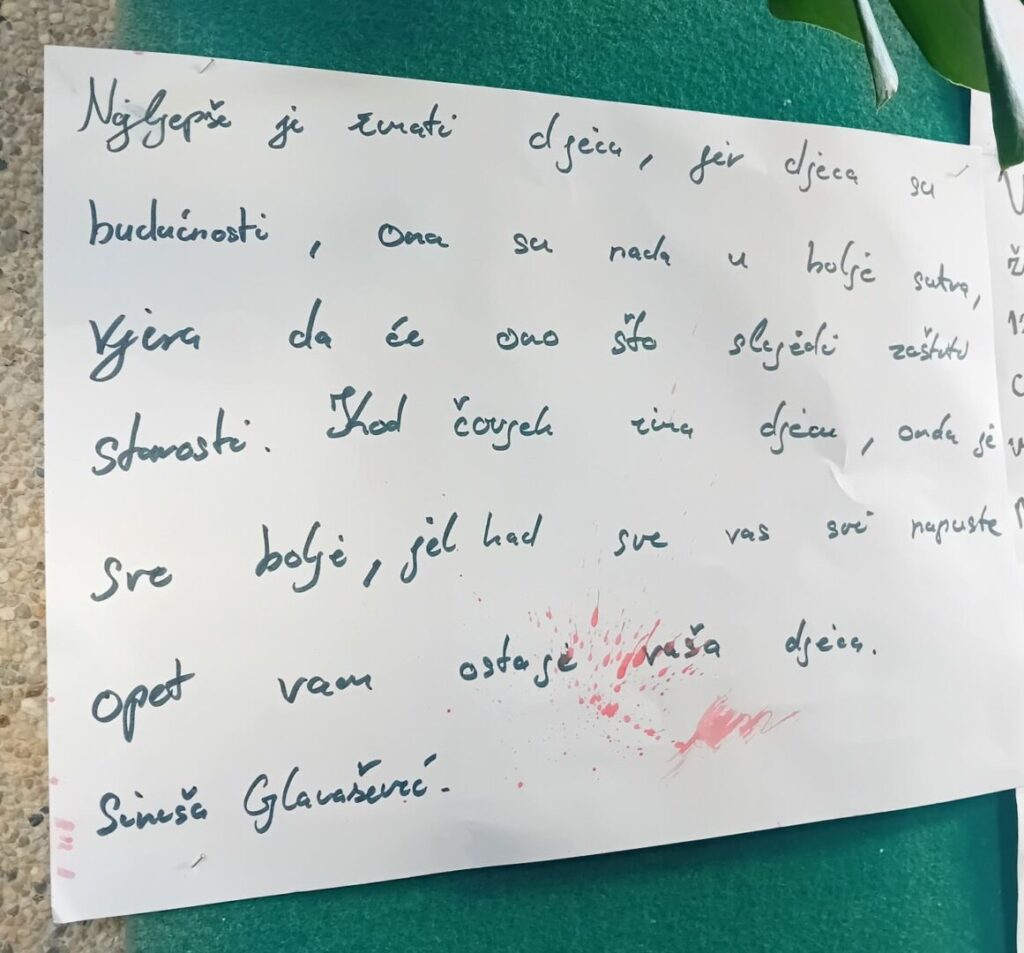 Najljepše je imati djecu, jer djeca su
budućnosti, ona su nada u bolje sutra,
Vjera da će ono što slijedi zaštiti
starosti. Kod čovjek ima djecu, onda je
sve bolje, jel kad sve vas svi napuste
opet vam ostaje vaša djeca.
Siniša Glavašević.